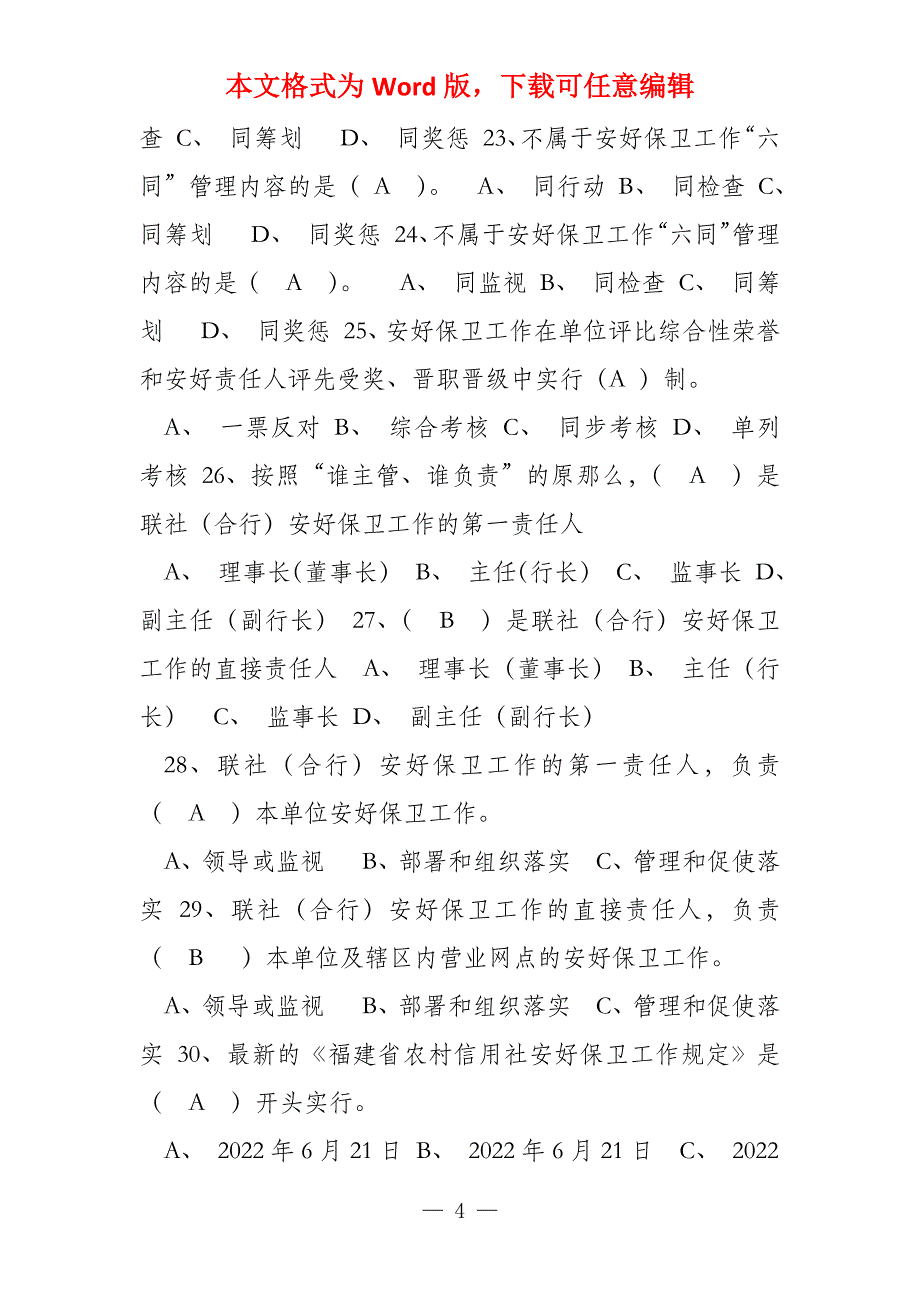 本文格式为 Word 版，下载可任意编辑
查 C、 同筹划 D、 同奖惩 23、不属于安好保卫工作“六
同” 管理内容的是（ A ）。 A、 同行动 B、 同检查 C、
同筹划 D、 同奖惩 24、不属于安好保卫工作“六同”管理
内容的是（ A ）。 A、 同监视 B、 同检查 C、 同筹
划 D、 同奖惩 25、安好保卫工作在单位评比综合性荣誉
和安好责任人评先受奖、晋职晋级中实行（A ）制。
A、 一票反对 B、 综合考核 C、 同步考核 D、 单列
考核 26、按照“谁主管、谁负责”的原那么，（ A ）是
联社（合行）安好保卫工作的第一责任人
A、 理事长（董事长） B、 主任（行长） C、 监事长 D、
副主任（副行长） 27、（ B ）是联社（合行）安好保卫
工作的直接责任人 A、 理事长（董事长） B、 主任（行
长） C、 监事长 D、 副主任（副行长）
28、联社（合行）安好保卫工作的第一责任人，负责
（ A ）本单位安好保卫工作。
A、领导或监视 B、部署和组织落实 C、管理和促使落
实 29、联社（合行）安好保卫工作的直接责任人，负责
（ B ）本单位及辖区内营业网点的安好保卫工作。
A、领导或监视 B、部署和组织落实 C、管理和促使落
实 30、最新的《福建省农村信用社安好保卫工作规定》是
（ A ）开头实行。
A、 2022 年 6 月 21 日 B、 2022 年 6 月 21 日 C、 2022
— 4 —